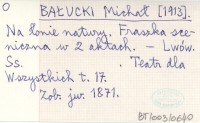 O BAŁUCKI Michał [1913].
Na łonie natury. Fraszka sce-
niczna w 2 aktach. – Lwów.
Ss. . Teatr dla
Wszystkich t. 17.
Zob. jw. 1871.
BT/003/0640